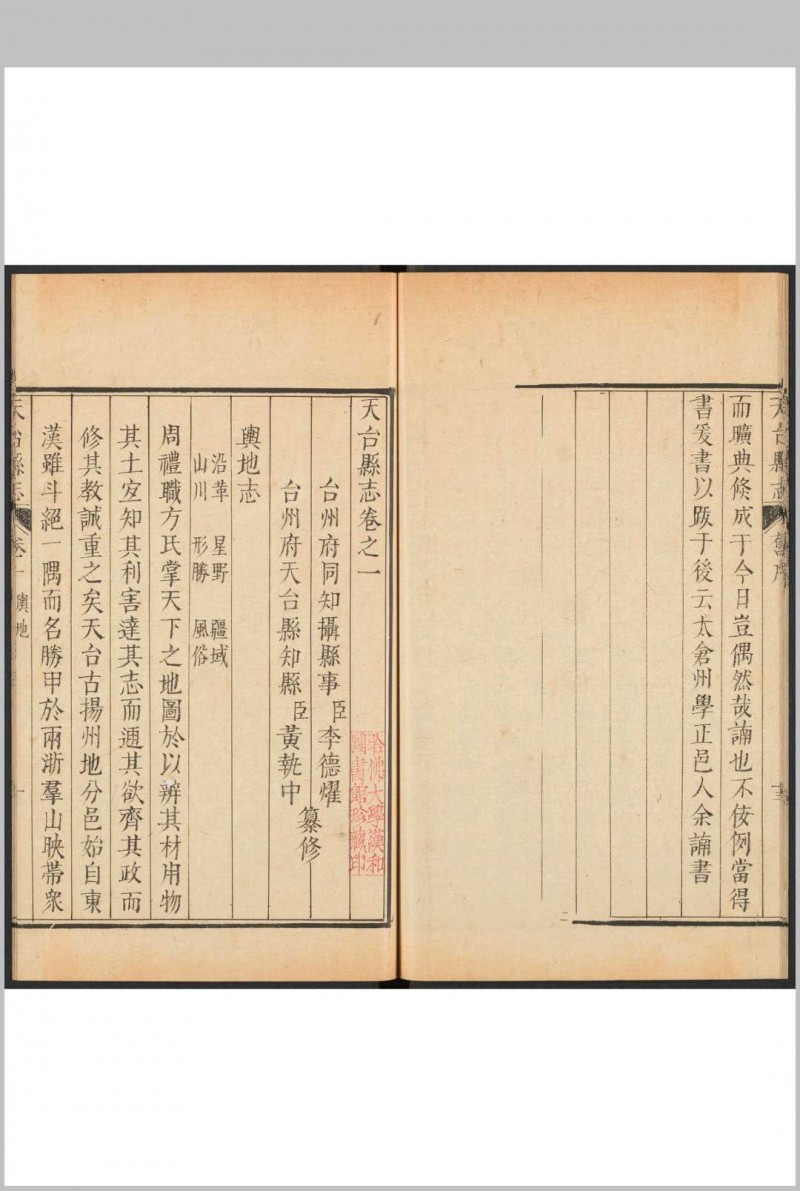 天台縣志 舊序
而曠典倐成于今日豈偶然哉誧也不佞例當得
書爰書以䟦于後云太倉州學正邑人余誧書
天台縣志卷之一
台州府同知攝縣事臣李德燿
台州府天台縣知縣臣黃執中
纂修
哈佛大學漢和
圖書館珍藏印
輿地志
沿革 星野 疆域
山川 形勝 風俗
周禮職方氏掌天下之地圖於以辨其材用物
其土宜知其利害達其志而通其欲齊其政而
修其教誠重之矣天台古揚州地分邑始自東
漢雖斗絕一隅而名勝甲於兩浙羣山映帶衆
天台縣志 卷一 輿地 一